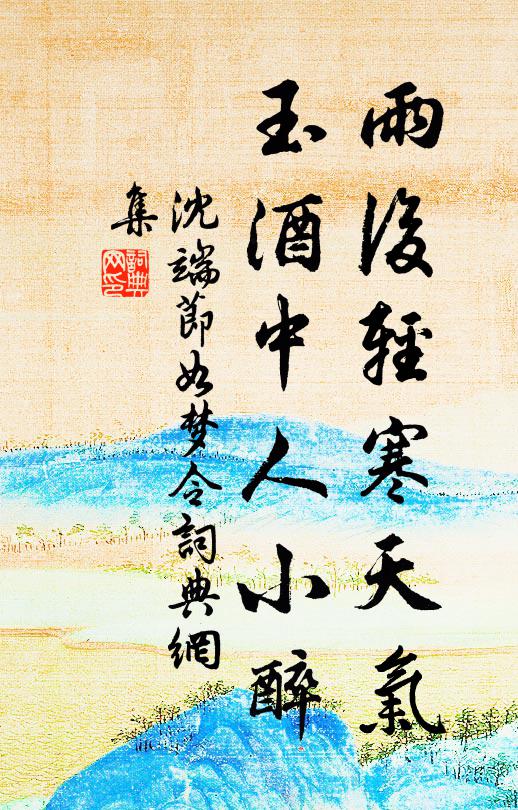 雨後輕寒天氣
玉酒中人小醉
沈端節如梦令詞典網
集
詞典
网印